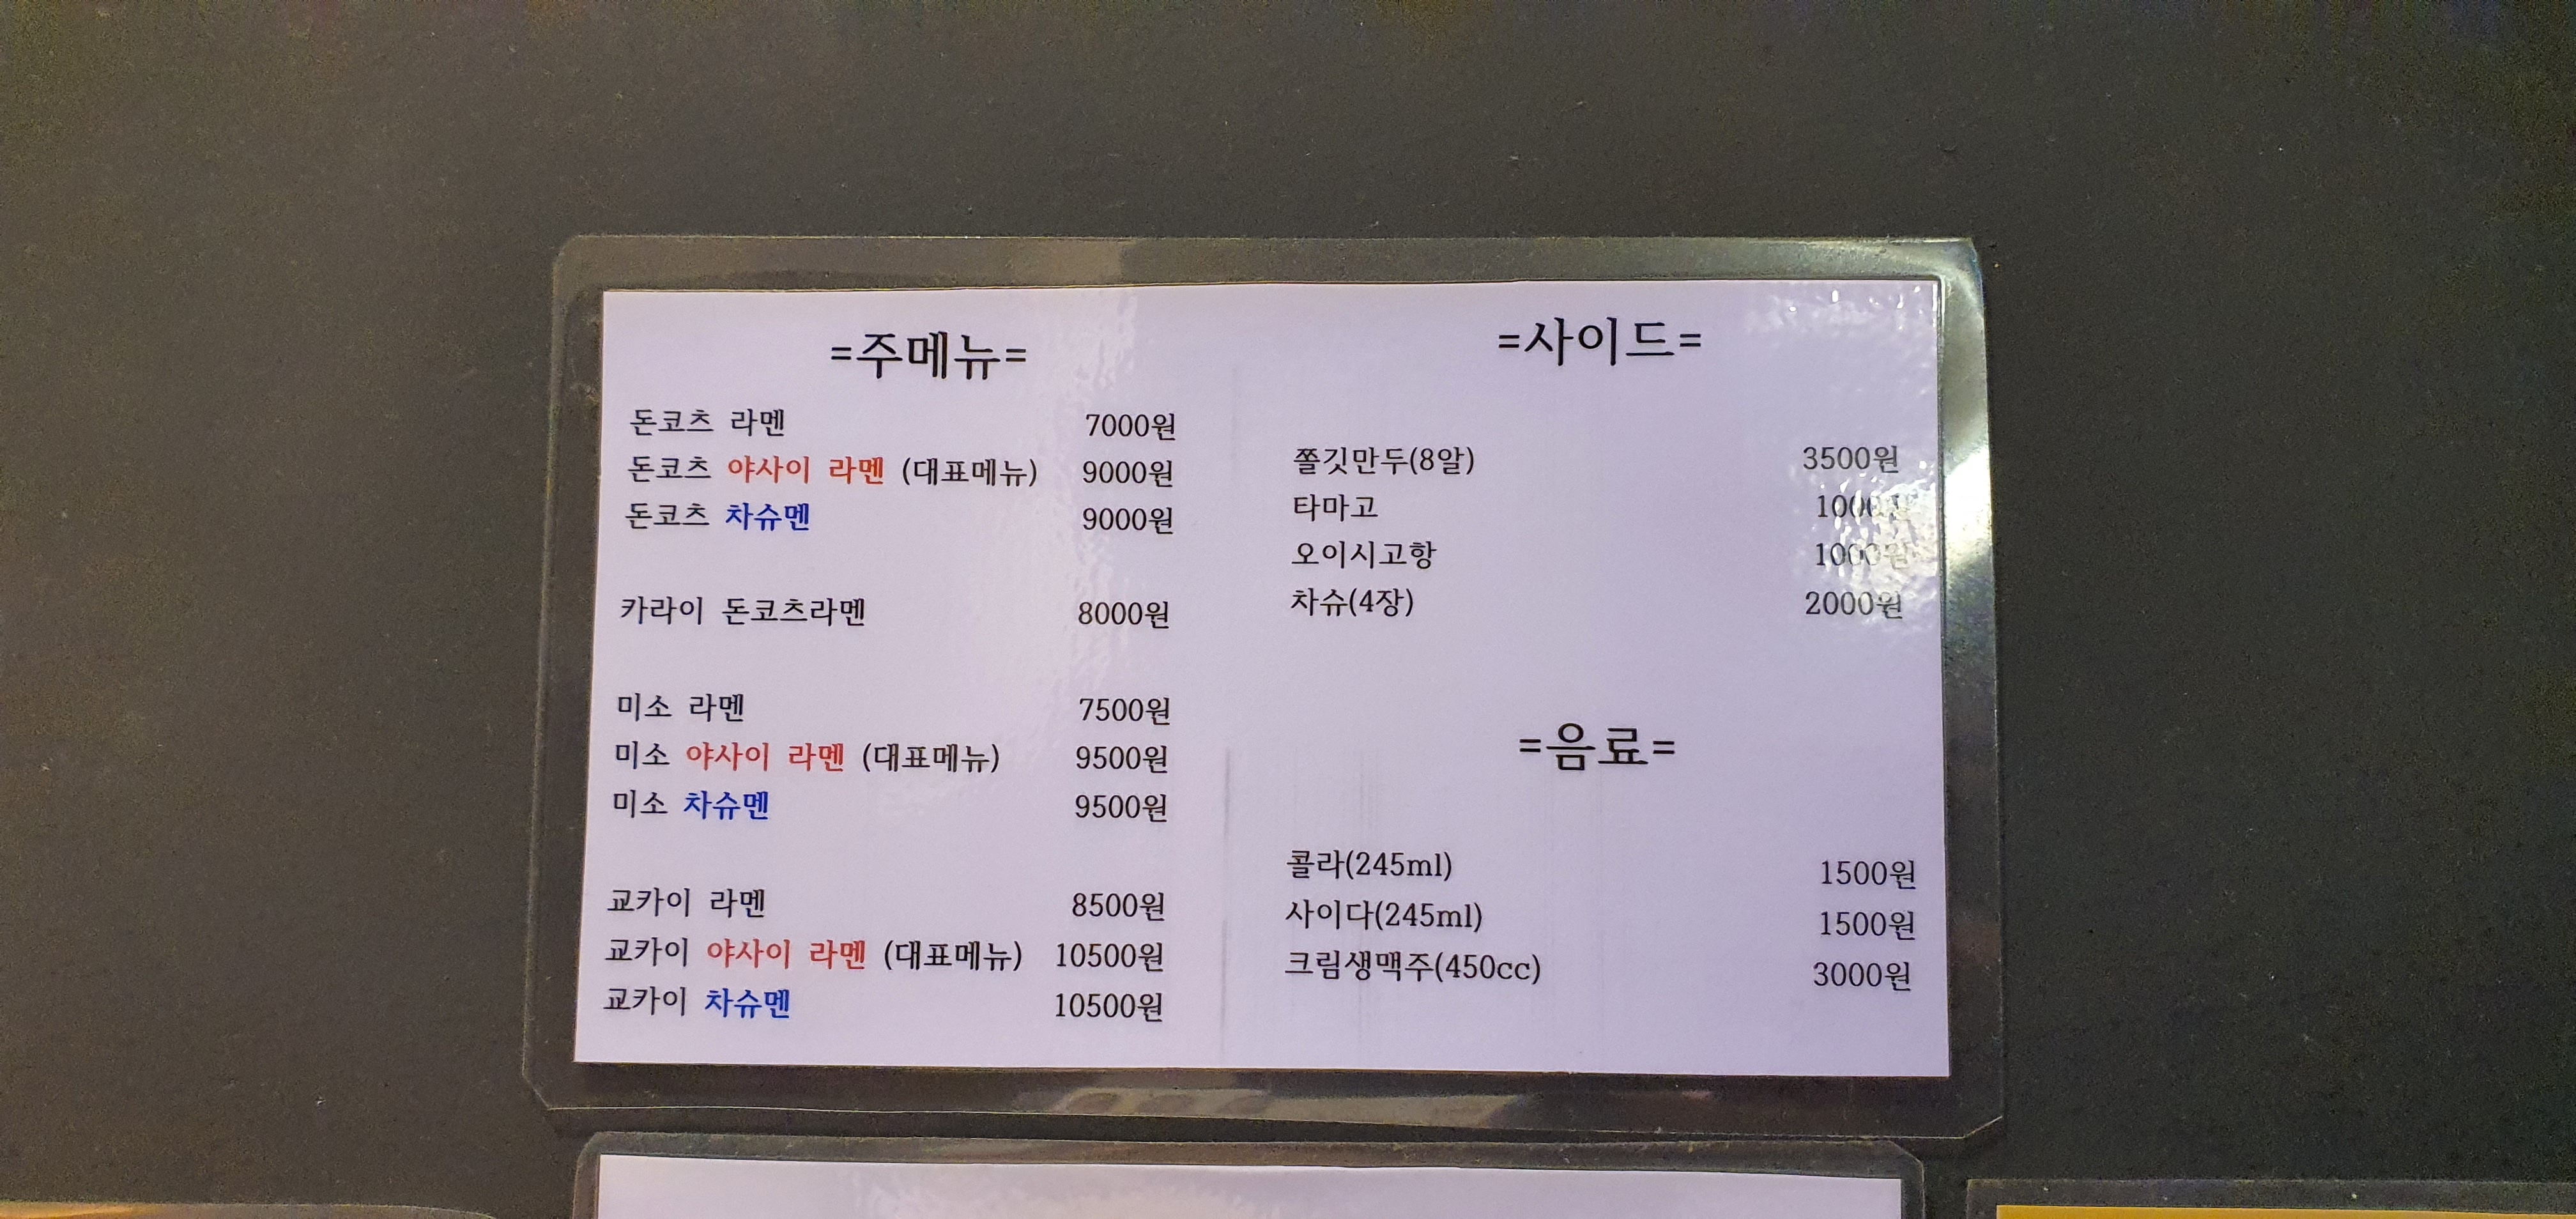 =주메뉴=
돈코츠 라멘 7000원
돈코츠 야사이 라멘 (대표메뉴) 9000원
돈코츠 차슈멘 9000원
카라이 돈코츠라멘 8000원
미소 라멘 7500원
미소 야사이 라멘 (대표메뉴) 9500원
미소 차슈멘 9500원
교카이 라멘 8500원
교카이 야사이 라멘 (대표메뉴) 10500원
교카이 차슈멘 10500원
=사이드=
쫄깃만두(8알) 3500원
타마고 1000원
오이시고항 1000원
차슈(4장) 2000원
=음료=
콜라(245ml) 1500원
사이다(245ml) 1500원
크림생맥주(450cc) 3000원